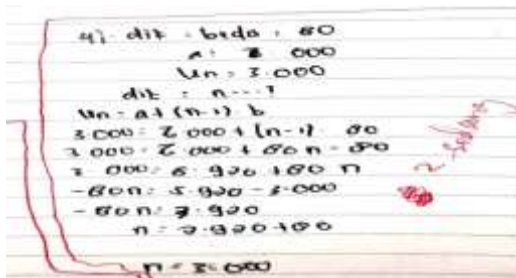 4). dik : beda : 80
a : 2 000
Un : 3.000
dit : n ... ?
Un = a + (n-1) b
3.000 = 2 000 + (n-1) 80
3 000 = 2 000 + 80 n - 80
= 5.920 + 80 n
-80n = 5.920 - 3.000
-80n =
n =
n = 3.000